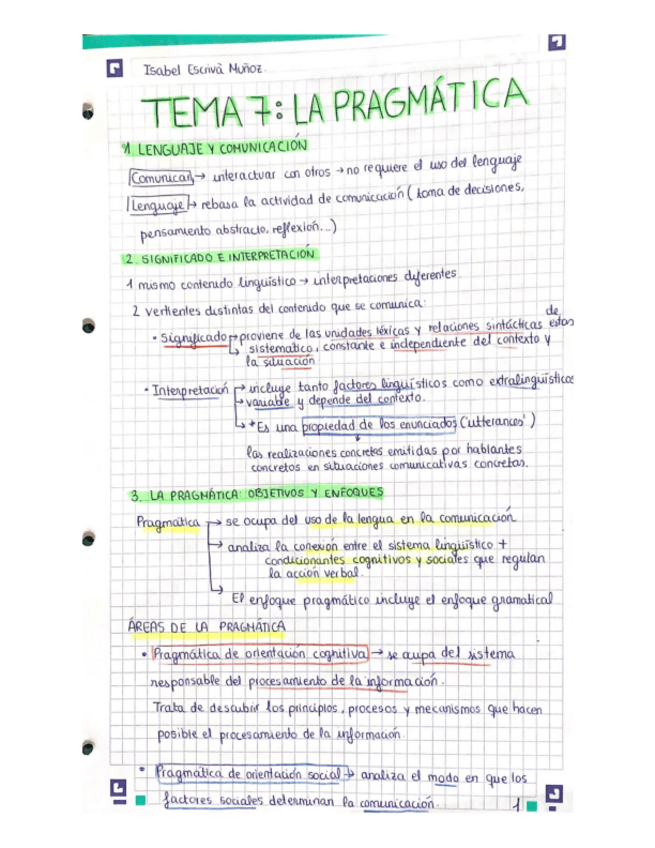 Isabel Escrivà Muñoz.
TEMA 7: LA PRAGMÁTICA
1. LENGUAJE Y COMUNICACIÓN
Comunicar → interactuar con otros → no requiere el uso del lenguaje
Lenguaje → rebasa la actividad de comunicación (toma de decisiones,
pensamiento abstracto, reflexión...)
2. SIGNIFICADO E INTERPRETACIÓN
1 mismo contenido lingüístico → interpretaciones diferentes
2 vertientes distintas del contenido que se comunica:
• Significado → proviene de las unidades léxicas y relaciones sintácticas de estas
↳ sistematico, constante e independiente del contexto y
la situación
• Interpretación → incluye tanto factores lingüísticos como extralingüísticos
→ variable y depende del contexto.
↳ *Es una propiedad de los enunciados ('utterances')
las realizaciones concretas emitidas por hablantes
concretos en situaciones comunicativas concretas.
3. LA PRAGMÁTICA: OBJETIVOS Y ENFOQUES
Pragmática → se ocupa del uso de la lengua en la comunicación
→ analiza la conexión entre el sistema lingüístico +
condicionantes cognitivos y sociales que regulan
la acción verbal.
↳ El enfoque pragmático incluye el enfoque gramatical
ÁREAS DE LA PRAGMÁTICA
• Pragmática de orientación cognitiva → se ocupa del sistema
responsable del procesamiento de la información.
Trata de descubrir los principios, procesos y mecanismos que hacen
posible el procesamiento de la información.
• Pragmática de orientación social → analiza el modo en que los
factores sociales determinan la comunicación.
1